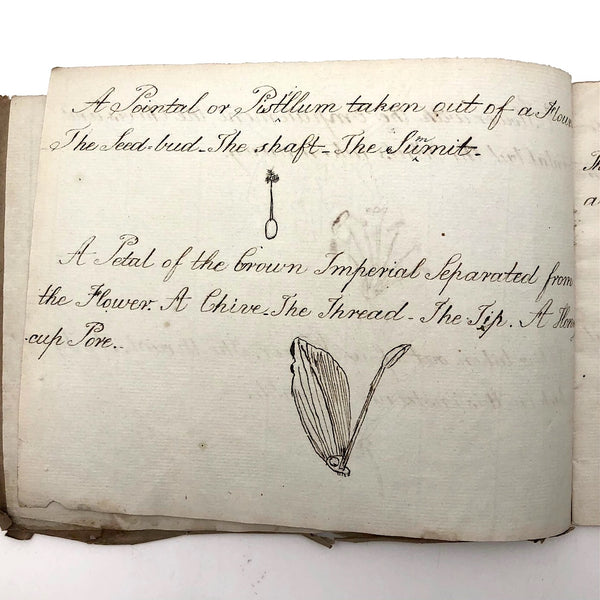 A Pointal or Pistllum taken out of a Flow
The Seed-bud - The shaft - The Summit -
A Petal of the Crown Imperial Separated from
the Flower. A Chive - The Thread - The Tip. A Hon
cup Pore..
Th
a